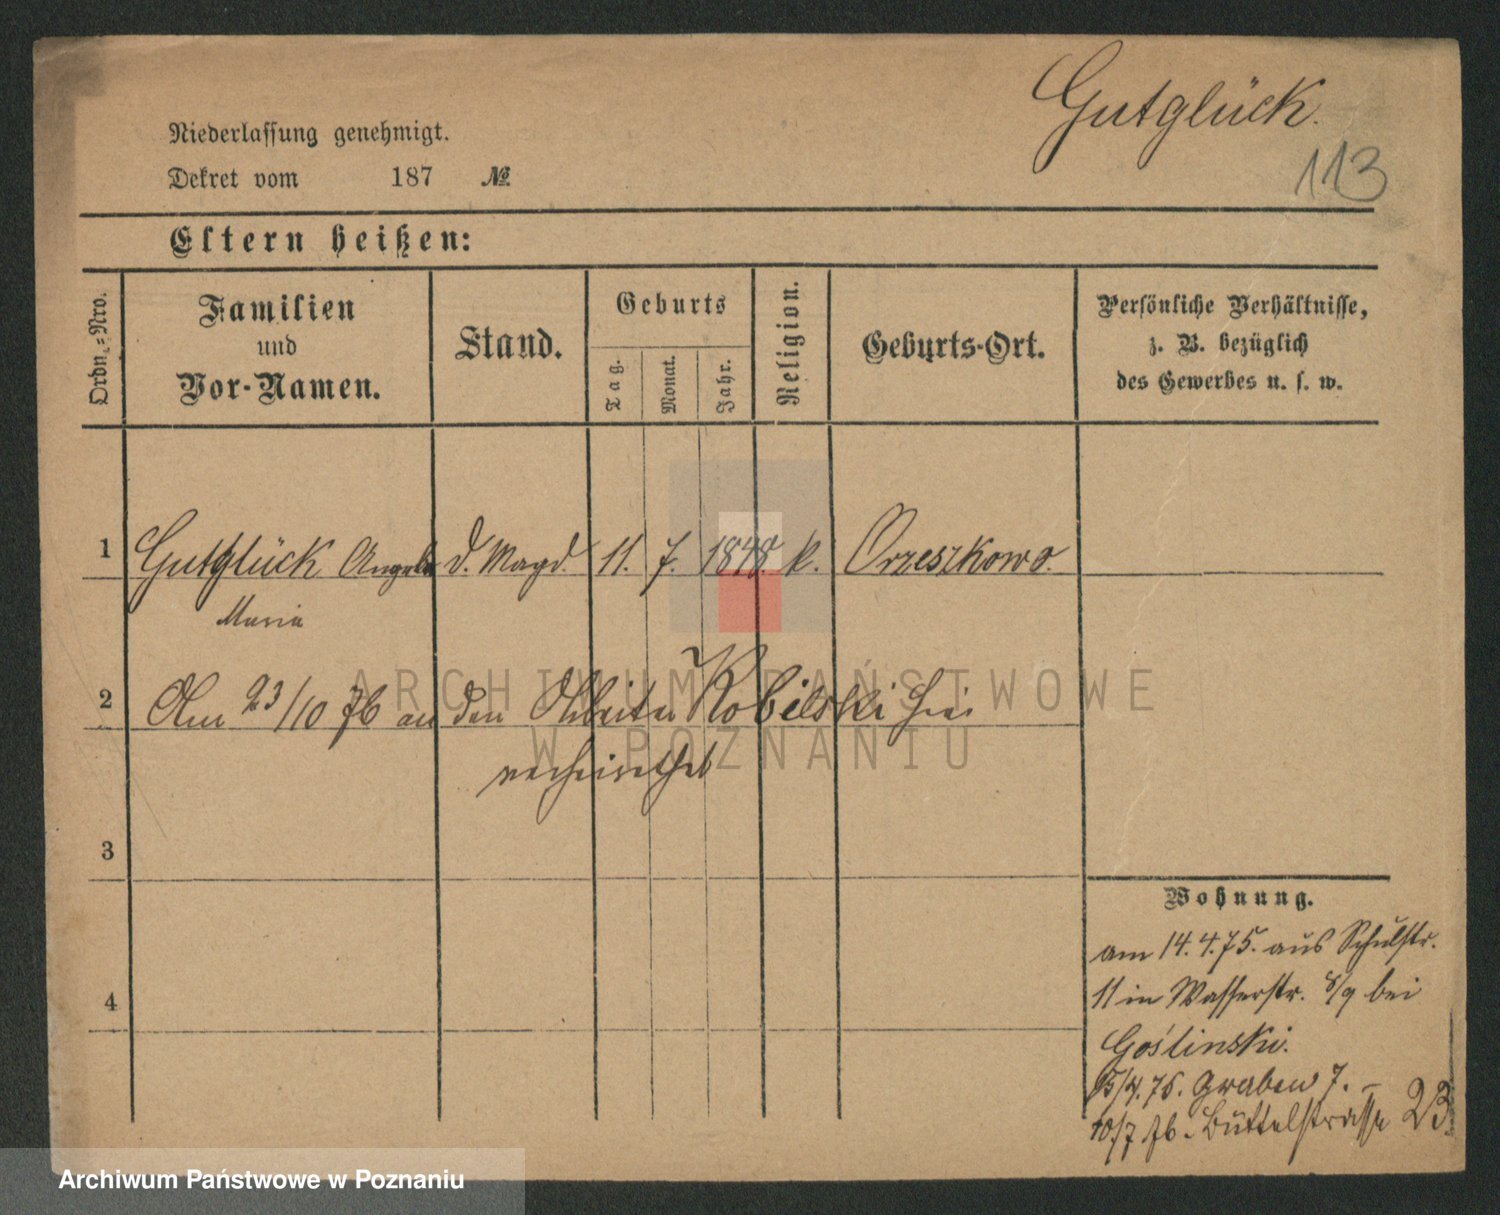 Gutglück.
113
Niederlassung genehmigt.
Dekret vom 187 №
Eltern heißen:
Ordn.=Nro.
Familien
und
Vor-Namen.
Stand.
Geburts
Tag.
Monat.
Jahr.
Religion.
Geburts-Ort.
Persönliche Verhältnisse,
z. B. bezüglich
des Gewerbes u. s. w.
1 Gutglück Angela d. Magd. 11. 7. 1848. k. Orzeszkowo.
Maria
2 Am 23/10 76 an den Arbeiter Kobilski hier
verheirathet
3
4
Wohnung.
am 14.4.75. aus Schulstr.
11 in Wasserstr. 8/9 bei
Goślinski.
15/4.76. Graben 7. –
10/7 76. Büttelstrasse 23
ARCHIWUM PAŃSTWOWE
W POZNANIU
Archiwum Państwowe w Poznaniu